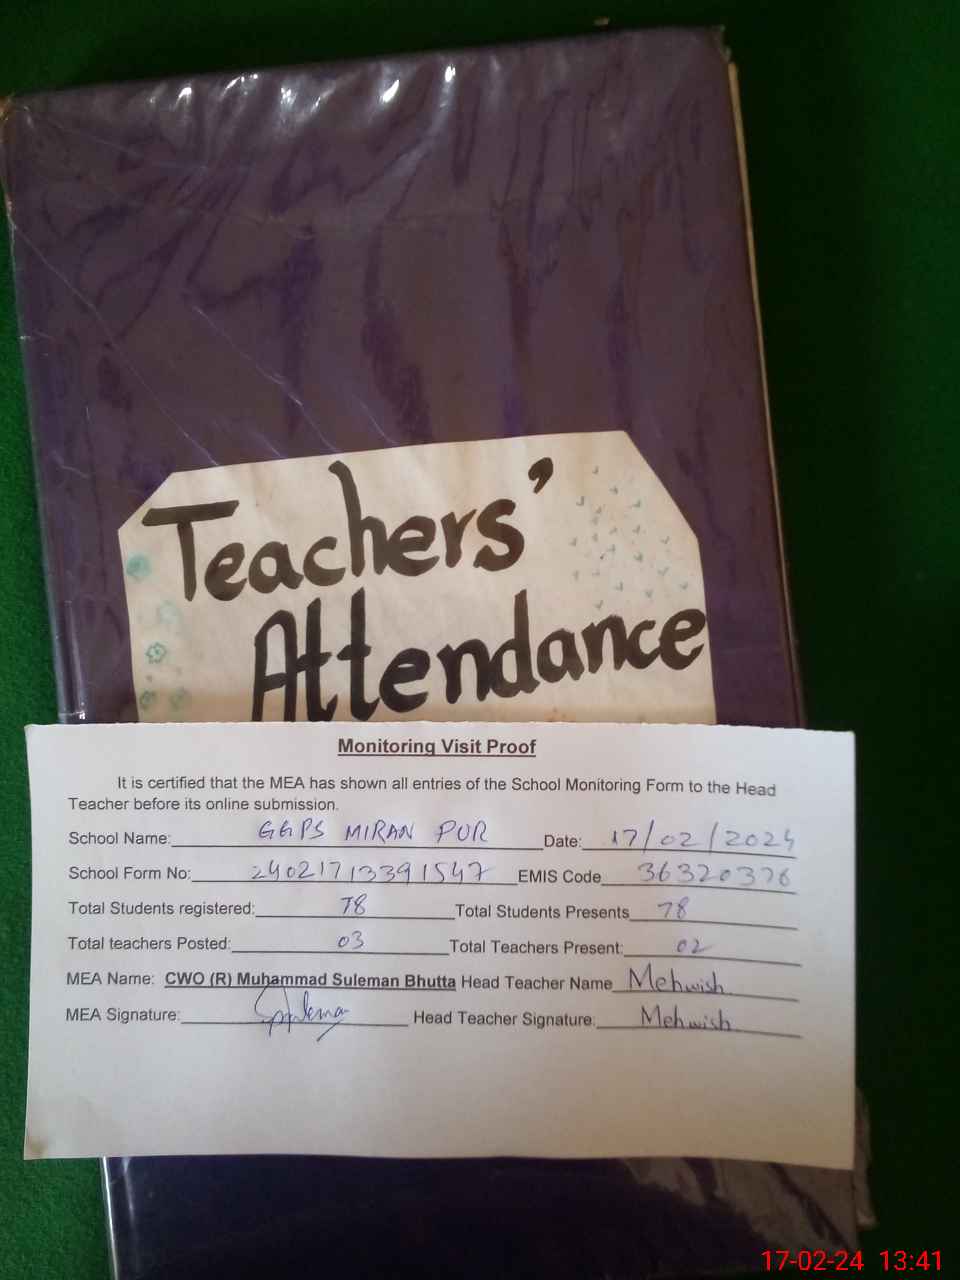 Teachers'
Attendance
Monitoring Visit Proof
It is certified that the MEA has shown all entries of the School Monitoring Form to the Head
Teacher before its online submission.
School Name: GGPS MIRAN PUR Date: 17/02/2024
School Form No: 24021713391547 EMIS Code 36320376
Total Students registered: 78 Total Students Presents 78
Total teachers Posted: 03 Total Teachers Present: 02
MEA Name: CWO (R) Muhammad Suleman Bhutta Head Teacher Name Mehwish
MEA Signature: Head Teacher Signature: Mehwish
17-02-24 13:41